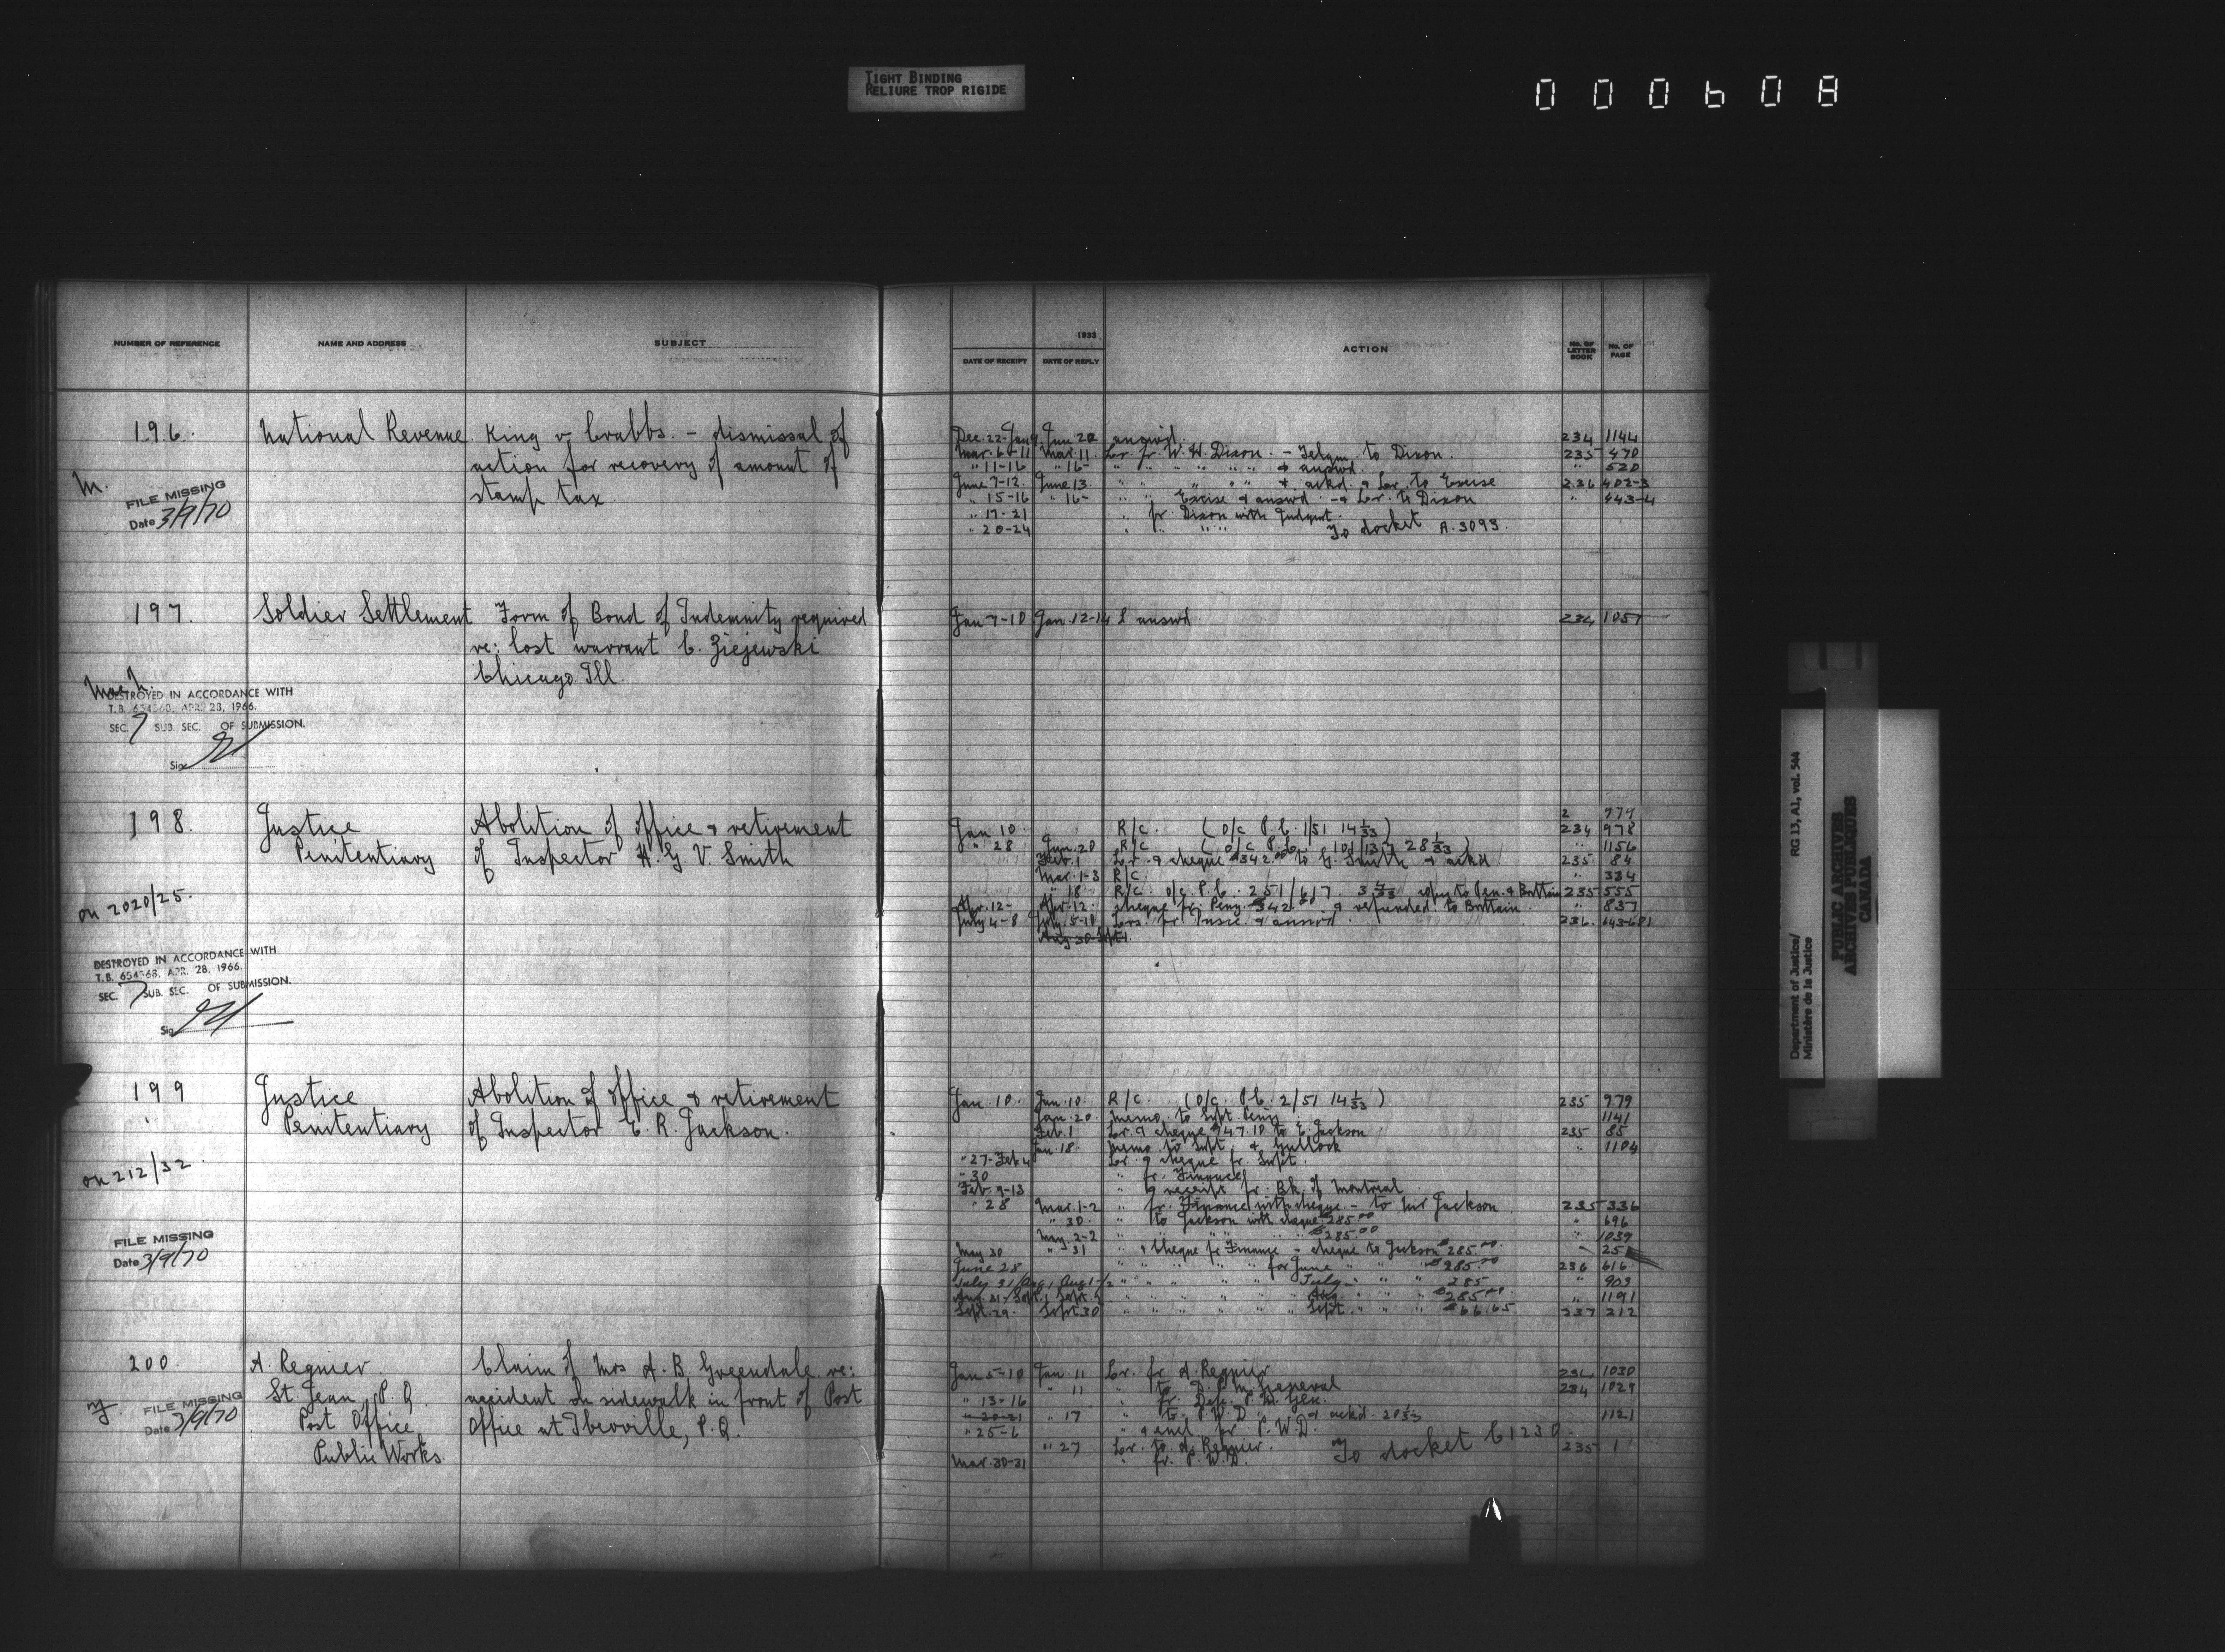 TIGHT BINDING
RELIURE TROP RIGIDE
000608
NUMBER OF REFERENCE NAME AND ADDRESS SUBJECT
196. National Revenue. King v. Crabbs. - dismissal of
action for recovery of amount of
stamp tax.
M.
FILE MISSING
Date 3/9/70
197. Soldier Settlement Form of Bond of Indemnity required
re: lost warrant C. Ziejewski
Chicago. Ill.
DESTROYED IN ACCORDANCE WITH
T.B. APR. 28, 1966.
SEC. 7 SUB. SEC. OF SUBMISSION.
Sig.
198. Justice Abolition of office & retirement
Penitentiary of Inspector H. G. V. Smith
on 2020/25.
DESTROYED IN ACCORDANCE WITH
T.B. 654368, APR. 28, 1966.
SEC. 7 SUB. SEC. OF SUBMISSION.
Sig.
199 Justice Abolition of office & retirement
Penitentiary of Inspector E. R. Jackson.
on 212/32.
FILE MISSING
Date 3/9/70
200. A. Regnier. Claim of Mrs A. B. Greendale re:
St. Jean, P.Q. accident on sidewalk in front of Post
Post Office Office at Iberville, P.Q.
Public Works.
FILE MISSING
Date 3/9/70
1933
DATE OF RECEIPT DATE OF REPLY ACTION No. OF LETTER BOOK No. OF PAGE
Dec. 22-Jan 9 Jan. 20 answd. 234 1144
Mar. 6-11 Mar. 11. Lr. fr. W. H. Dixon. - Telgm. to Dixon. 235 470
" 11-16 " 16- " " " " " & answd. " 520
June 7-12. June 13. " " " " & ackd. & Lr. to Excise 236 402-3
" 15-16 " 16- " " Excise & answd. - & Lr. to Dixon " 443-4
" 17-21 " fr. Dixon with Judgmt.
" 20-24 " " " " To docket A.3093.
Jan 7-10 Jan. 12-14 answd. 234 1057
2 977
Jan 10. R/C. (O/C P.C. 1/51 14 1/33) 234 978
" 28 Jan. 20 R/C. 28 1/33) " 1156
Feb. 1 Lr. & cheque $342.00 to G. Smith & ackd. 235 84
Mar. 1-3 R/C. " 334
" 18 R/C. O/C. P.C. 251/617. copy to Pen. & Brittain 235 555
Apr. 12- Apr. 12- cheque fr. Peny. $342.00 & refunded to Brittain. " 837
July 4-8 July 5-10 Lrs. fr. & answd. 236. 643-681
Jan. 10. Jan. 10. R/C. (O/C. P.C. 2/51 14 1/33) 235 979
Jan. 20. Memo. to Supt. Peny. 1141
Feb. 1 Lr. & cheque 747.10 to E. Jackson 235 85
Jan. 18. Memo. to Supt. & Gullock " 1104
" 27-Feb 4 Lr. & cheque fr. Supt.
" 30 " fr. Finance
Feb. 9-13 " & receipt fr. Bk. of Montreal
" 28 Mar. 1-2 " fr. Finance with cheque - to Mr Jackson 235 336
" 30. " to Jackson with cheque $285.00 " 696
May. 2-2 " " " " " $285.00 " 1039
May 30 " 31 " & Cheque fr Finance - cheque to Jackson $285.00 " 25
June 28 " " " " for June " " $285.00 236 616
July 31/Aug. 1 Aug 1-2 " " " " " July " " 285 " 903
Aug. 31-Sept. 1 Sept. " " " " " Aug. " " $285.00 " 1191
Sept. 29. Sept. 30 " " " " " Sept. " " $66.65 237 212
Jan 5-10 Jan. 11 Lr. fr. A. Regnier 234 1030
" 11 " to D. P. M. General 234 1029
" 13-16 " fr. Dep. P. M. Gen.
" 20-21 " 17 " to P.W.D. & ackd. 20 1/33 1121
" 25-6 " & encl. fr. P.W.D.
" 27 Lr. to A. Regnier. To docket C1230. 235 1
Mar. 30-31 " fr. P.W.D.
Department of Justice/ RG 13, A1, vol. 544
Ministère de la Justice
PUBLIC ARCHIVES
ARCHIVES PUBLIQUES
CANADA